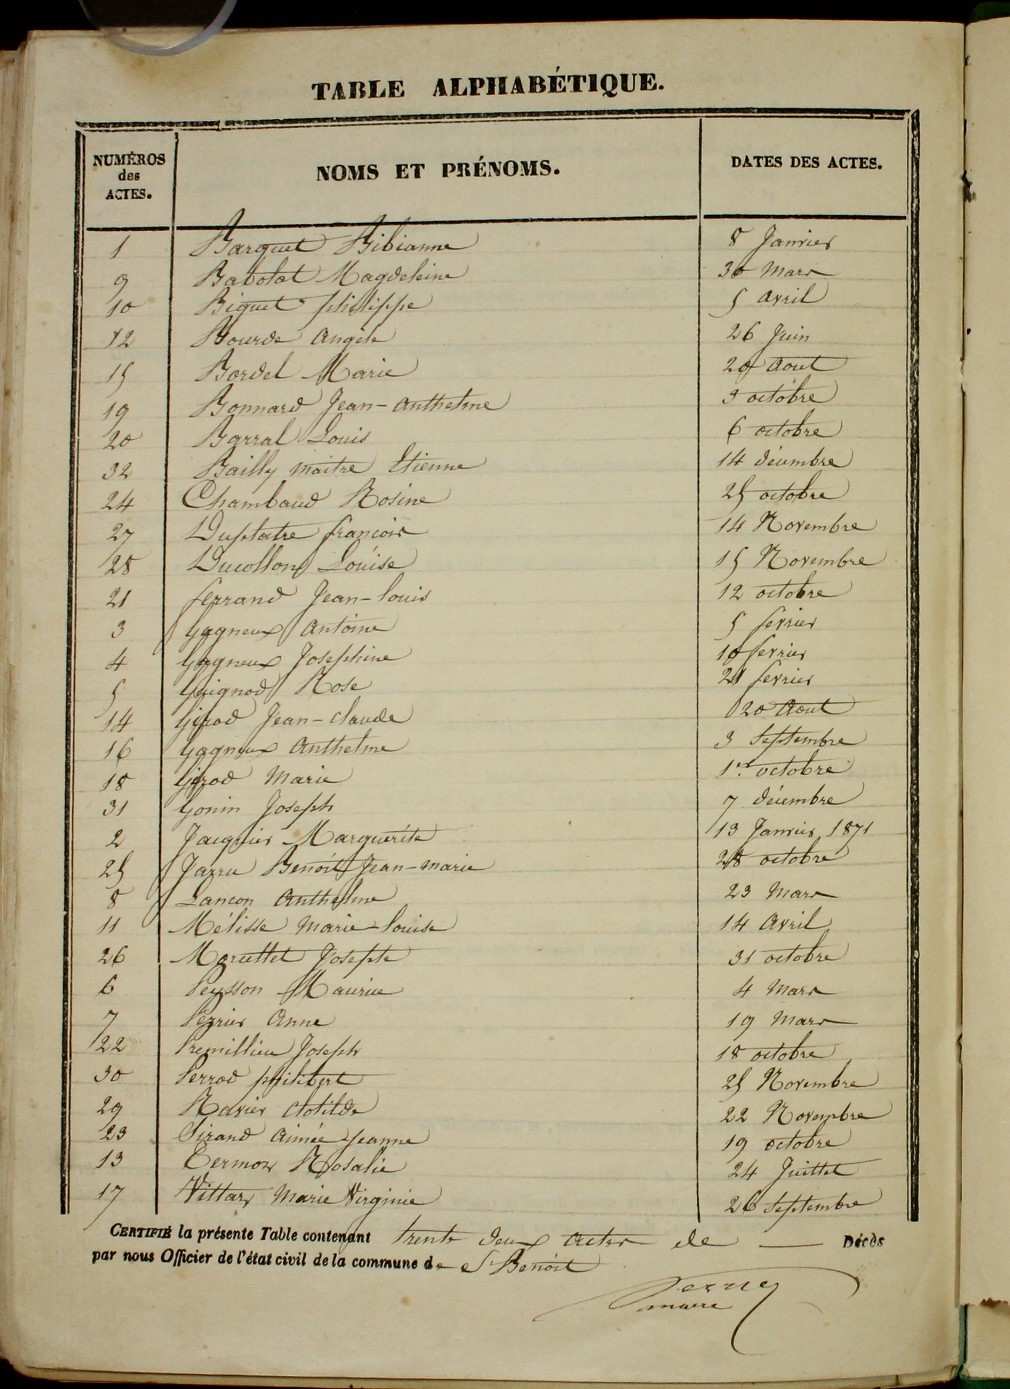 TABLE ALPHABÉTIQUE.
NUMÉROS des ACTES. NOMS ET PRÉNOMS. DATES DES ACTES.
1 Barquet Bibianne 8 Janvier
9 Babolat Magdeleine 30 Mars
10 Biguet philippe 5 avril
12 Bourde Angele 26 Juin
15 Bordel Marie 20 Aout
19 Bonnard Jean-Anthelme 3 octobre
20 Barral Louis 6 octobre
32 Bailly maitre Etienne 14 décembre
24 Chambaud Rosine 25 octobre
27 Duplatre françois 14 Novembre
28 Ducollomb Louise 15 Novembre
21 ferrand Jean-louis 12 octobre
3 Gagneux Antoine 5 fevrier
4 Gagneux Josephine 10 fevrier
5 Guignod Rose 21 fevrier
14 Girod Jean-claude 20 Aout
16 Gagneux Anthelme 3 Septembre
18 Girod Marie 1er octobre
31 Gonin Joseph 7 décembre
2 Jacquier Marguerite 13 Janvier 1871
25 Benoit Jean-marie 28 octobre
8 Lancon Anthelme 23 Mars
11 Mélisse Marie-louise 14 Avril
26 Marcellet Joseph 31 octobre
6 Peysson Maurice 4 Mars
7 Perrier Anne 19 Mars
22 Premillieu Joseph 18 octobre
30 Perrod philibert 25 Novembre
29 Ravier clotilde 22 Novembre
23 Sirand Aimée Jeanne 19 octobre
13 Termoz Rosalie 24 Juillet
17 Vittaz Marie Virginie 26 Septembre
CERTIFIÉ la présente Table contenant trente deux actes de — Décès
par nous Officier de l'état civil de la commune de St Benoit
maire